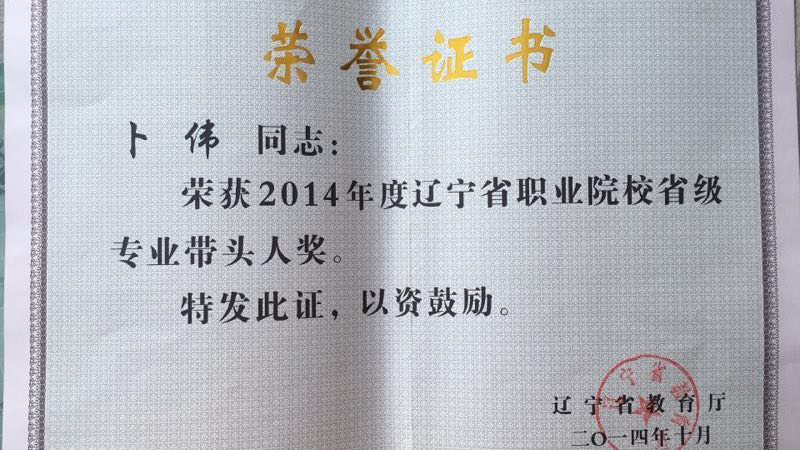 荣誉证书
卜 伟 同志:
荣获2014年度辽宁省职业院校省级
专业带头人奖。
特发此证,以资鼓励。
辽宁省教育厅
二〇一四年十月
辽宁省教